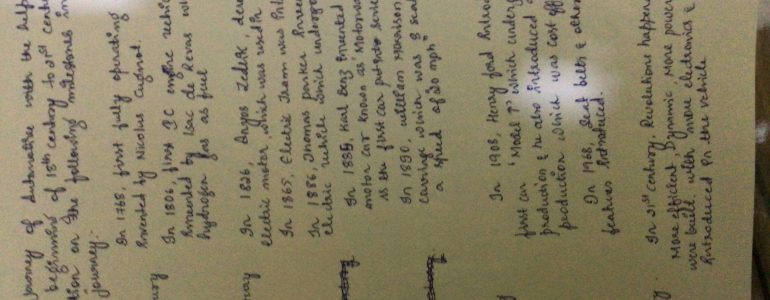 Journey of Automotive with the help
beginning of 18th century to 21st cent
tion on the following milestones in
journey:
In 1768, first fully operating
Invented by Nicolus Cugnot.
In 1806, first IC engine vehicle
Invented by Isac de Revas wh
hydrogen gas as fuel
ury
In 1826 Anyos Zedlik, deve
electric motor, which was used in
In 1865, Electric Tram was
In 1886, Thomas parker Inven
electric vehicle which undergo
In 1885, Karl Benz Invented
motor car known as Motorwa
is the first car put into serie
In 1890, william Morrison
carriage which was 8 seat
a speed of 20 mph"
In 1908, Henry ford Introdu
first car 'Model T' which underg
production & he also introduced a
production which was cost eff
In 1968, Seat belts & other
features Introduced.
In 21st century, Revolutions happen
More efficient, Dynamic, More power
were built. with more electronics &
Introduced in the vehicle.